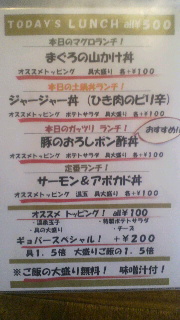 TODAY'S LUNCH all¥500
本日のマグロランチ！
まぐろの山かけ丼
オススメトッピング 具大盛り 各+¥100
本日の土鍋丼ランチ！
ジャージャー丼（ひき肉のピリ辛）
オススメトッピング ポテトサラダ 具大盛り 各+¥100
本日のガッツリ ランチ！
おすすめ!!
豚のおろしポン酢丼
オススメトッピング ポテトサラダ 具大盛り 各+¥100
定番ランチ！
サーモン＆アボカド丼
オススメトッピング 温玉 具大盛り 各+¥100
オススメ トッピング！ all¥100
・温泉玉子 ・特製ポテトサラダ
・具の大盛り ・チーズ
ギョバースペシャル！ +¥200
具1.5倍 大盛りご飯の1.5倍
※ご飯の大盛り無料！ 味噌汁付！